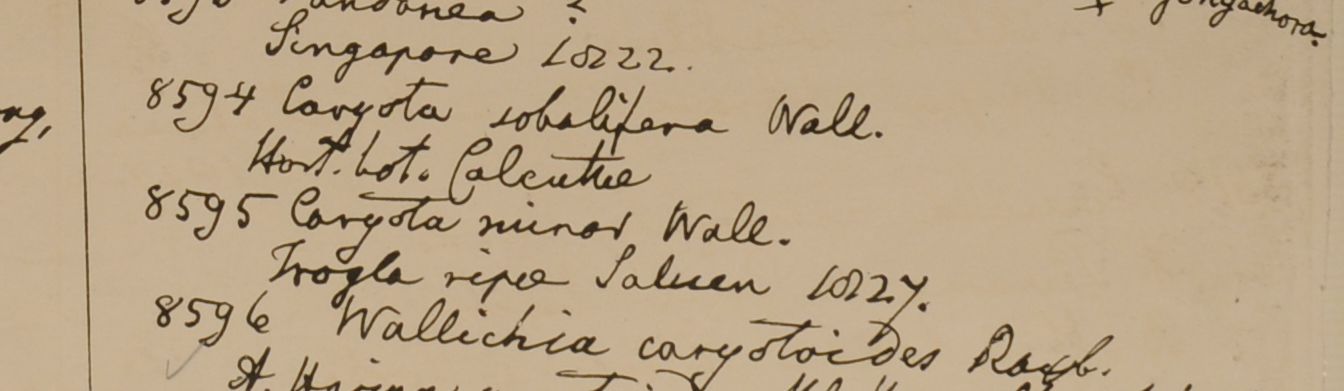 Singapore 1822.
8594 Caryota sobolifera Wall.
Hort. bot. Calcuttae
8595 Caryota minor Wall.
Trogla ripae Saluen 1827.
8596 Wallichia caryotoides Roxb.